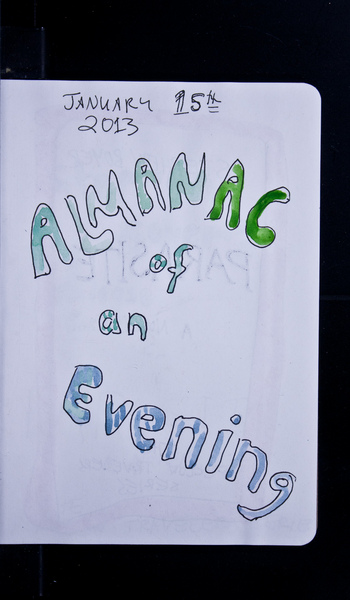 JANUARY 15th
2013
ALMANAC
of
an
Evening